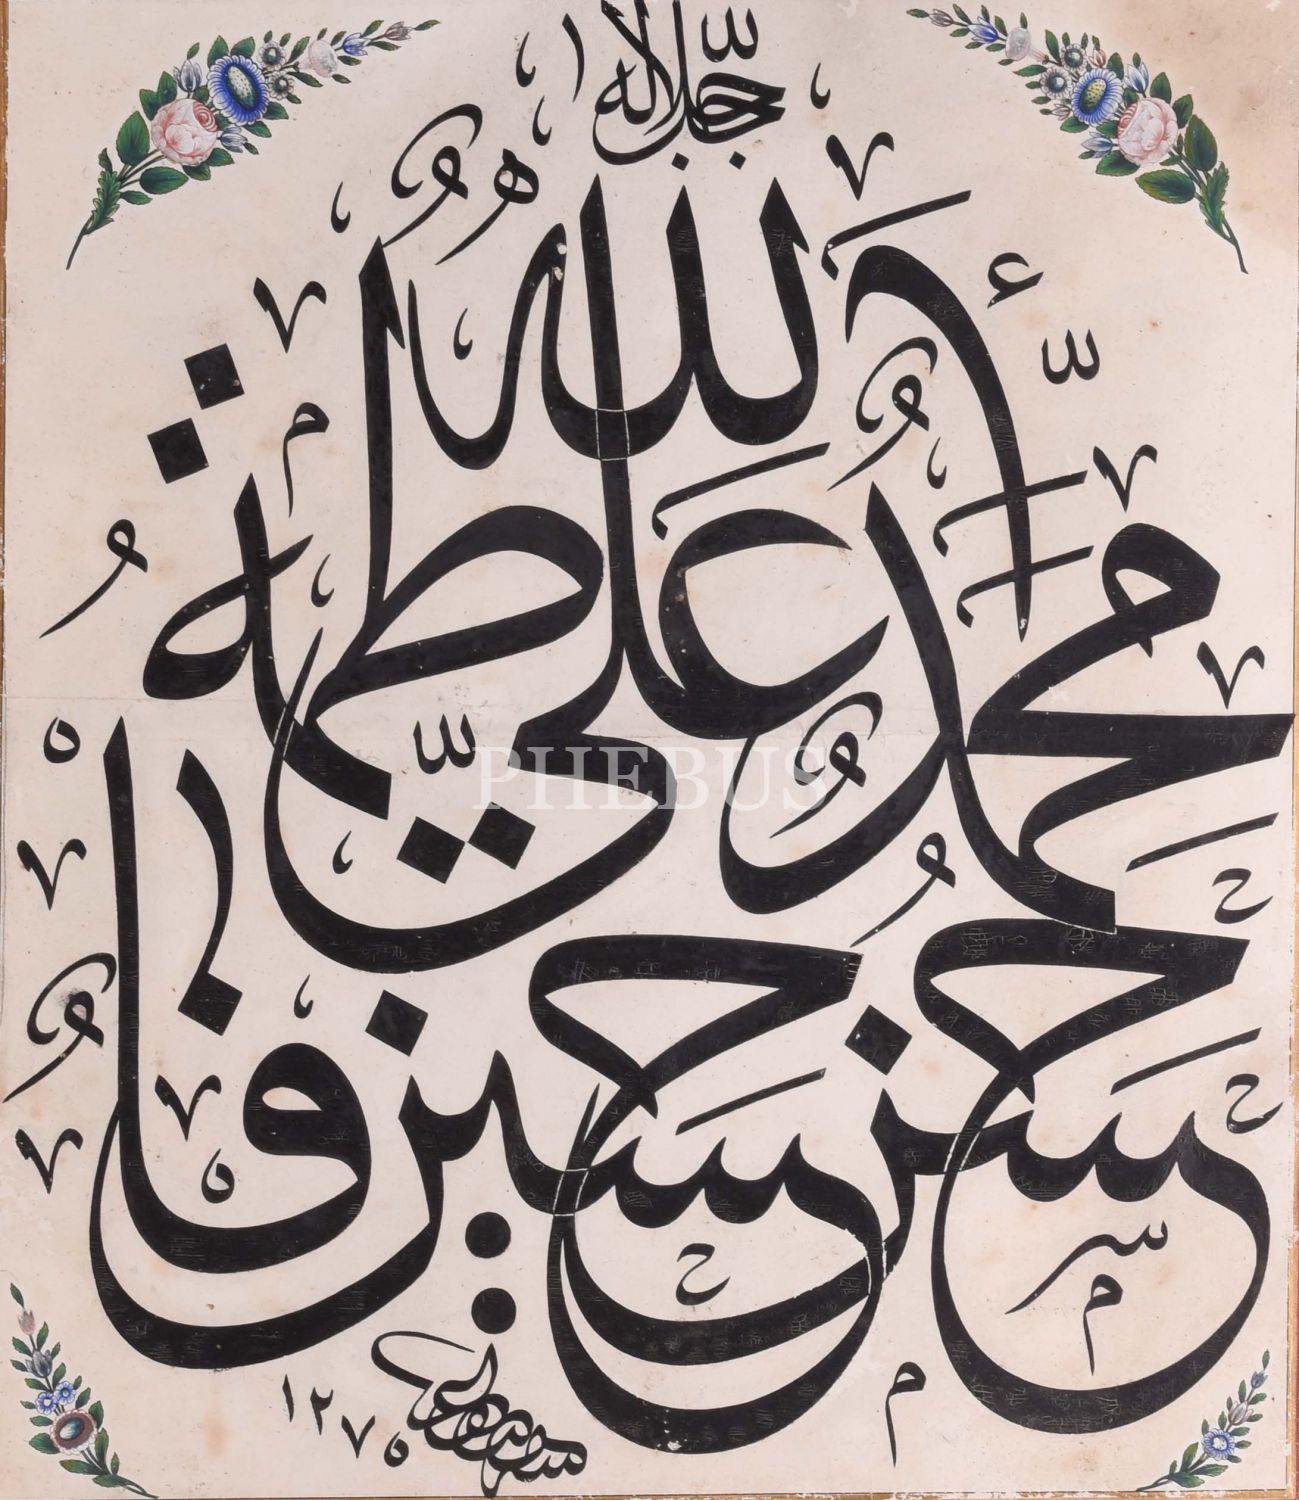 جل جلاله
الله
محمد
علي
فاطمة
حسن
حسين
PHEBUS
١٢٧٥